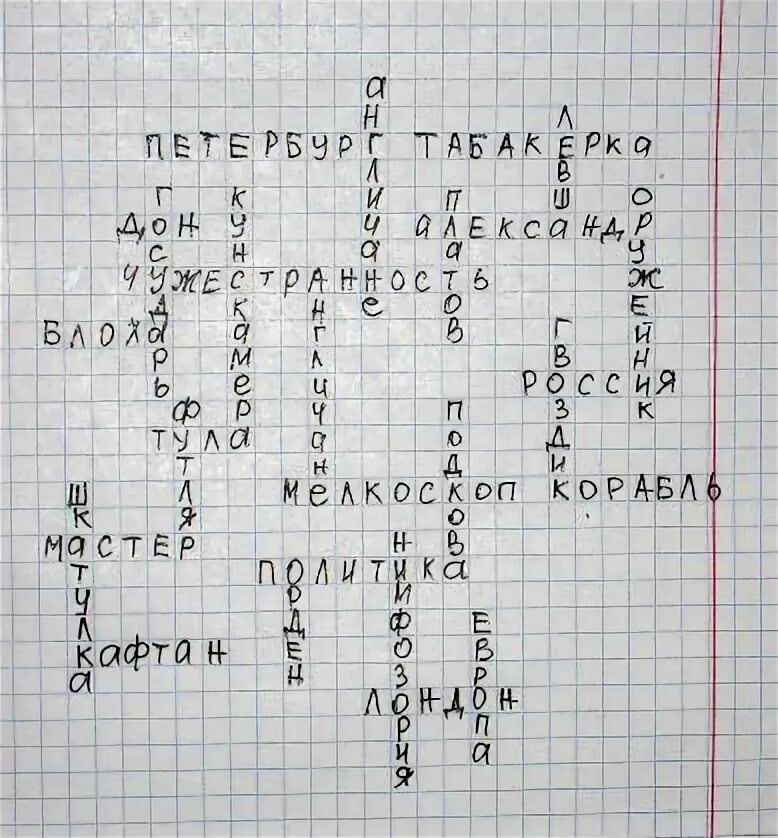 ПЕТЕРБУРГ
ТАБАКЕРКА
ДОН
АЛЕКСАНДР
ЧУЖЕСТРАННОСТЬ
БЛОХА
РОССИЯ
ТУЛА
МеЛКОСКОП
КОРАБЛЬ
МАСТЕР
ПОЛИТИКа
КАФТАН
ЛОНДОН
аНГЛИЧаНе
ЛЕВШа
ГОСУДаРЬ
КУНСКаМеРа
ПЛаТОВ
ОРУЖЕЙНИК
АНГЛИЧаНе
ГВОЗДИК
ФУТЛЯР
ПОДКОВа
ШКаТУЛКа
НИМФОЗОРИЯ
ОРДЕН
ЕВРОПа